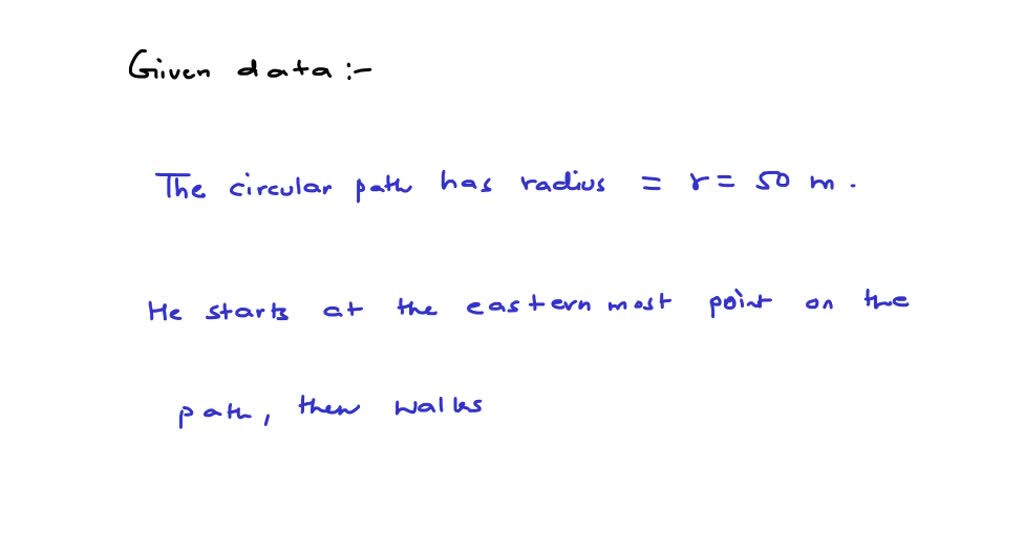 Given data :-
The circular path has radius = r = 50 m .
He starts at the eastern most point on the
path, then walks